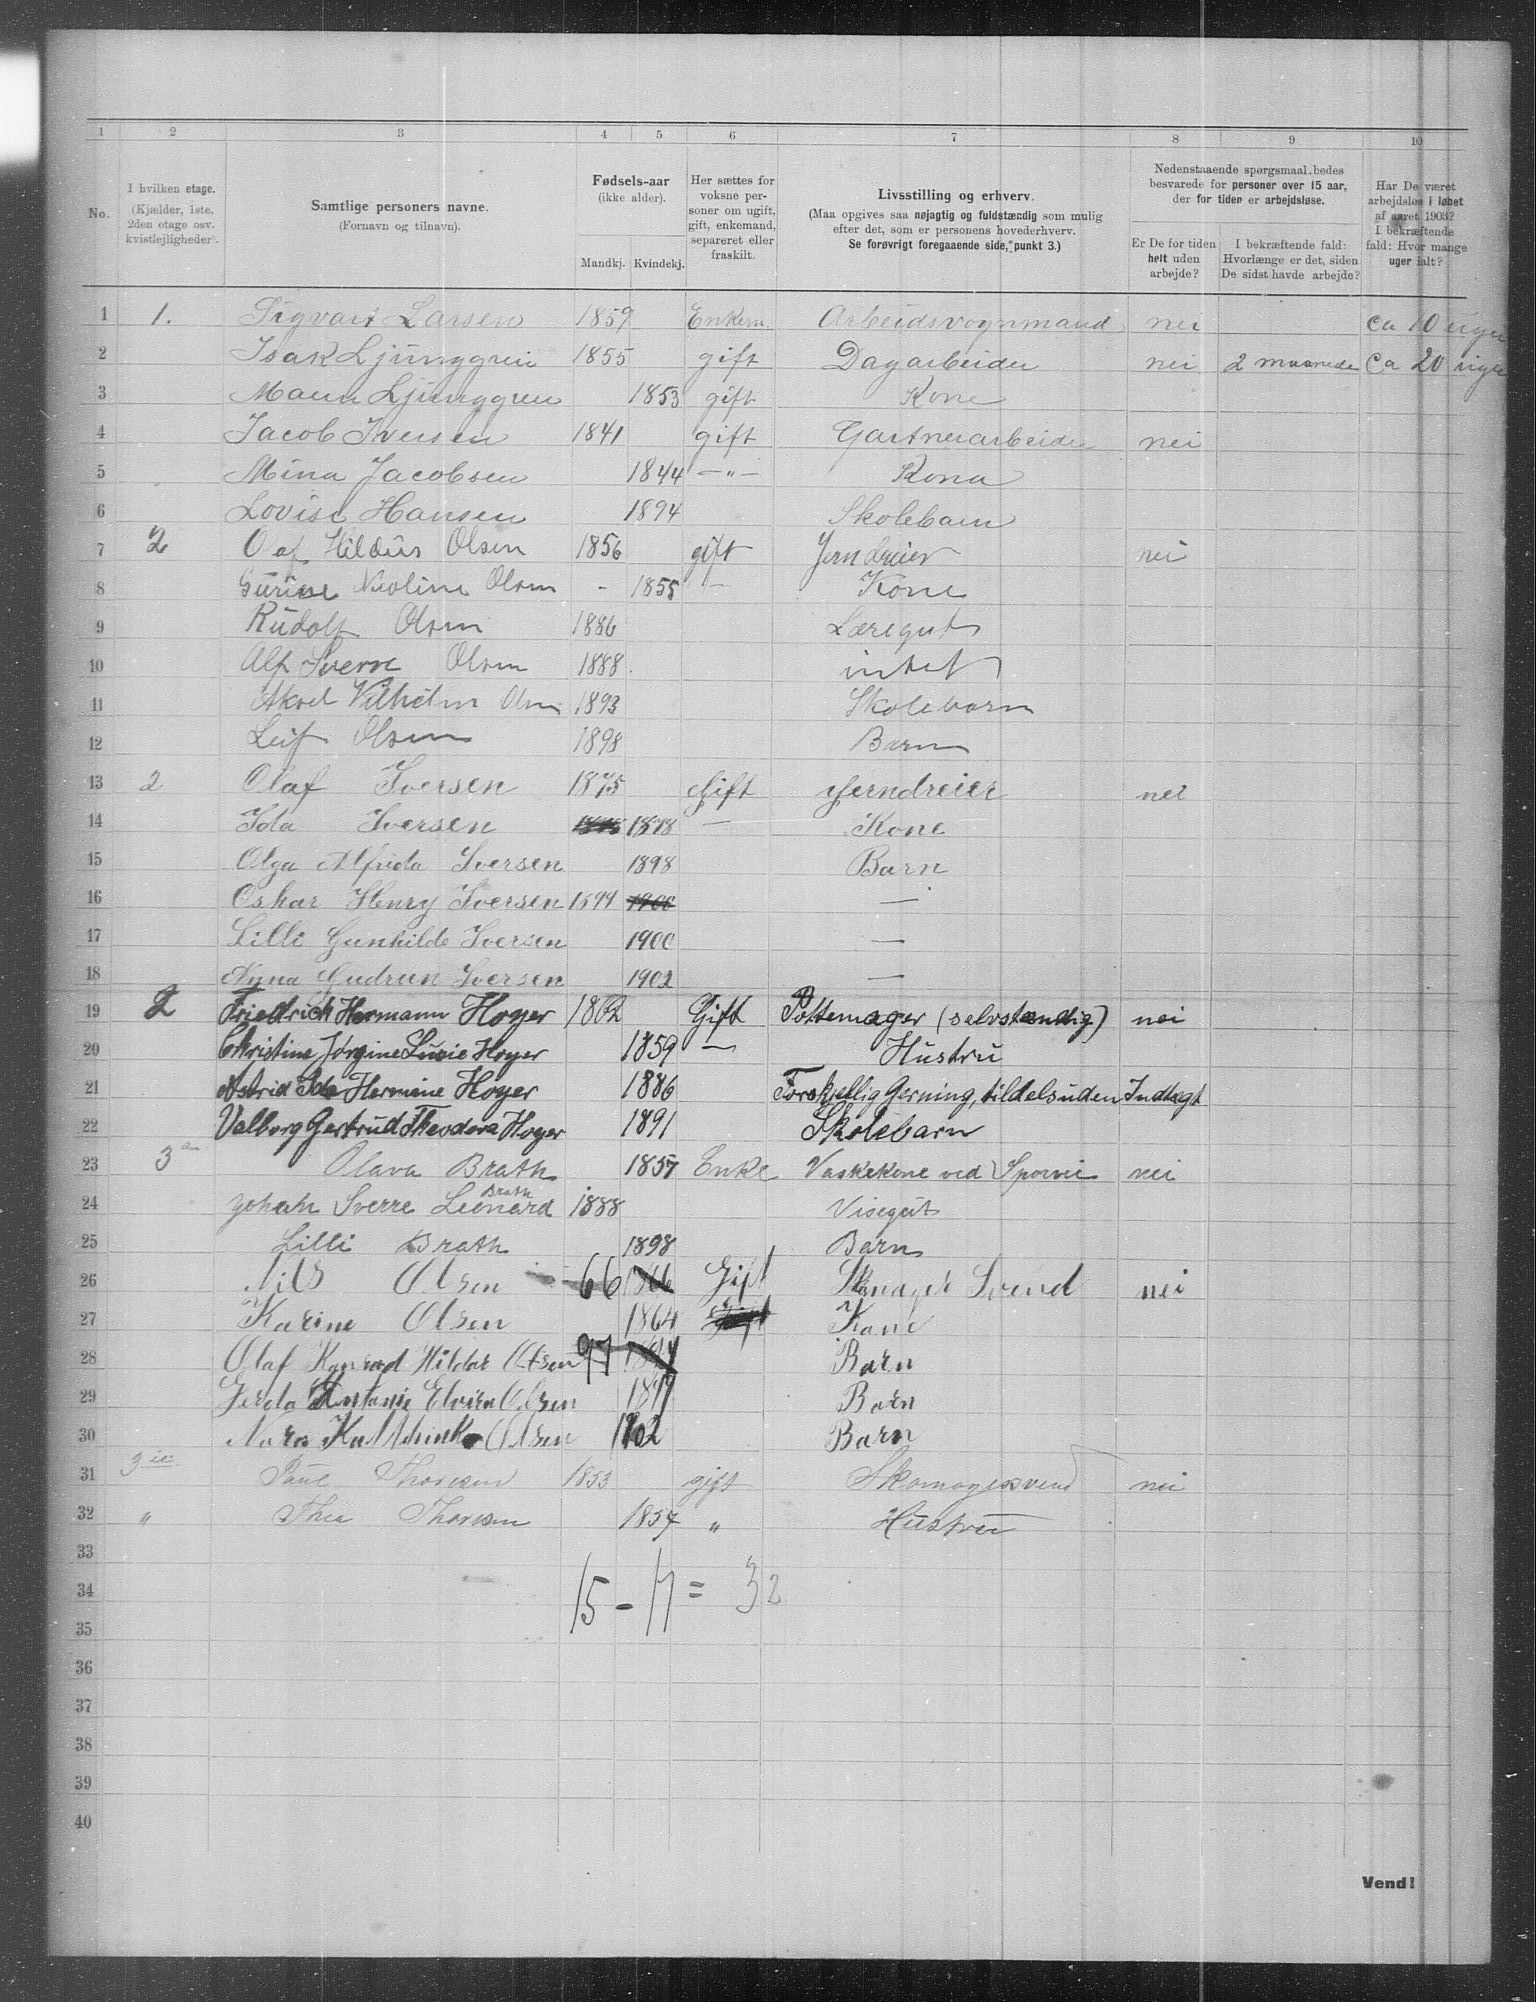 1 2 3 4 5 6 7 8 9 10
No.
I hvilken etage.
(Kjælder, 1ste,
2den etage osv.
kvistlejligheder).
Samtlige personers navne.
(Fornavn og tilnavn).
Fødsels-aar
(ikke alder).
Mandkj. Kvindekj.
Her sættes for
voksne per-
soner om ugift,
gift, enkemand,
separeret eller
fraskilt.
Livsstilling og erhverv.
(Maa opgives saa nøjagtig og fuldstændig som mulig
efter det, som er personens hovederhverv.
Se forøvrigt foregaaende side, punkt 3.)
Nedenstaaende spørgsmaal bedes
besvarede for personer over 15 aar,
der for tiden er arbejdsløse.
Er De for tiden
helt uden
arbejde?
I bekræftende fald:
Hvorlænge er det, siden
De sidst havde arbejde?
Har De været
arbejdsløs i løbet
af aaret 1903?
I bekræftende
fald: Hvor mange
uger ialt?
1 1. Sigvart Larsen 1859 Enkem. Arbeidsvognmand nei ca 10 uger
2 Isak Ljunggren 1855 gift Dagarbeider nei 2 maaneder ca 20 uger
3 Ljunggren 1853 gift Kone
4 Jacob Iversen 1841 gift Gartnerarbeider nei
5 Mina Jacobsen 1844 —"— Kona
6 Lovise Hansen 1894 Skolebarn
7 2 Olaf Hildus Olsen 1856 gift Jerndreier nei
8 Gurine Nicoline Olsen - 1855 — Kone
9 Rudolf Olsen 1886 Læregut
10 Alf Sverre Olsen 1888 intet
11 Aksel Vilhelm Olsen 1893 Skolebarn
12 Leif Olsen 1898 Barn
13 2 Olaf Iversen 1875 Gift Jerndreier nei
14 Ida Iversen 1875 1878 — Kone
15 Olga Alfrida Iversen 1898 Barn
16 Oskar Henry Iversen 1899 1900 —
17 Lilli Gunhilde Iversen 1900 —
18 Anna Gudrun Iversen 1902 —
19 2 Friedrich Hermann Hoyer 1862 Gift Pottemager (selvstændig) nei
20 Christine Jørgine Lucie Hoyer 1859 — Hustru
21 Astrid Ida Hermine Hoyer 1886 Forskjellig Gerning, tildels uden Indtægt
22 Valborg Gertrud Theodora Hoyer 1891 Skolebarn
23 3 Olava Brath 1857 Enke Vaskekone ved Sporvei nei
24 Johan Sverre Leonard Brath 1888 Visegut
25 Lilli Brath 1898 Barn
26 Nils Olsen 66 1866 Gift Skomager Svend nei
27 Karine Olsen 1864 Gift Kone
28 Olaf Konrad Hildar Olsen 97 1897 Barn
29 Gerda Antonie Elvira Olsen 1899 Barn
30 Nora Olsen 1902 Barn
31 3 Paul Thoresen 1853 gift Skomagersvend nei
32 " Thea Thoresen 1857 " Hustru
33
34 15 - 17 = 32
35
36
37
38
39
40
Vend!